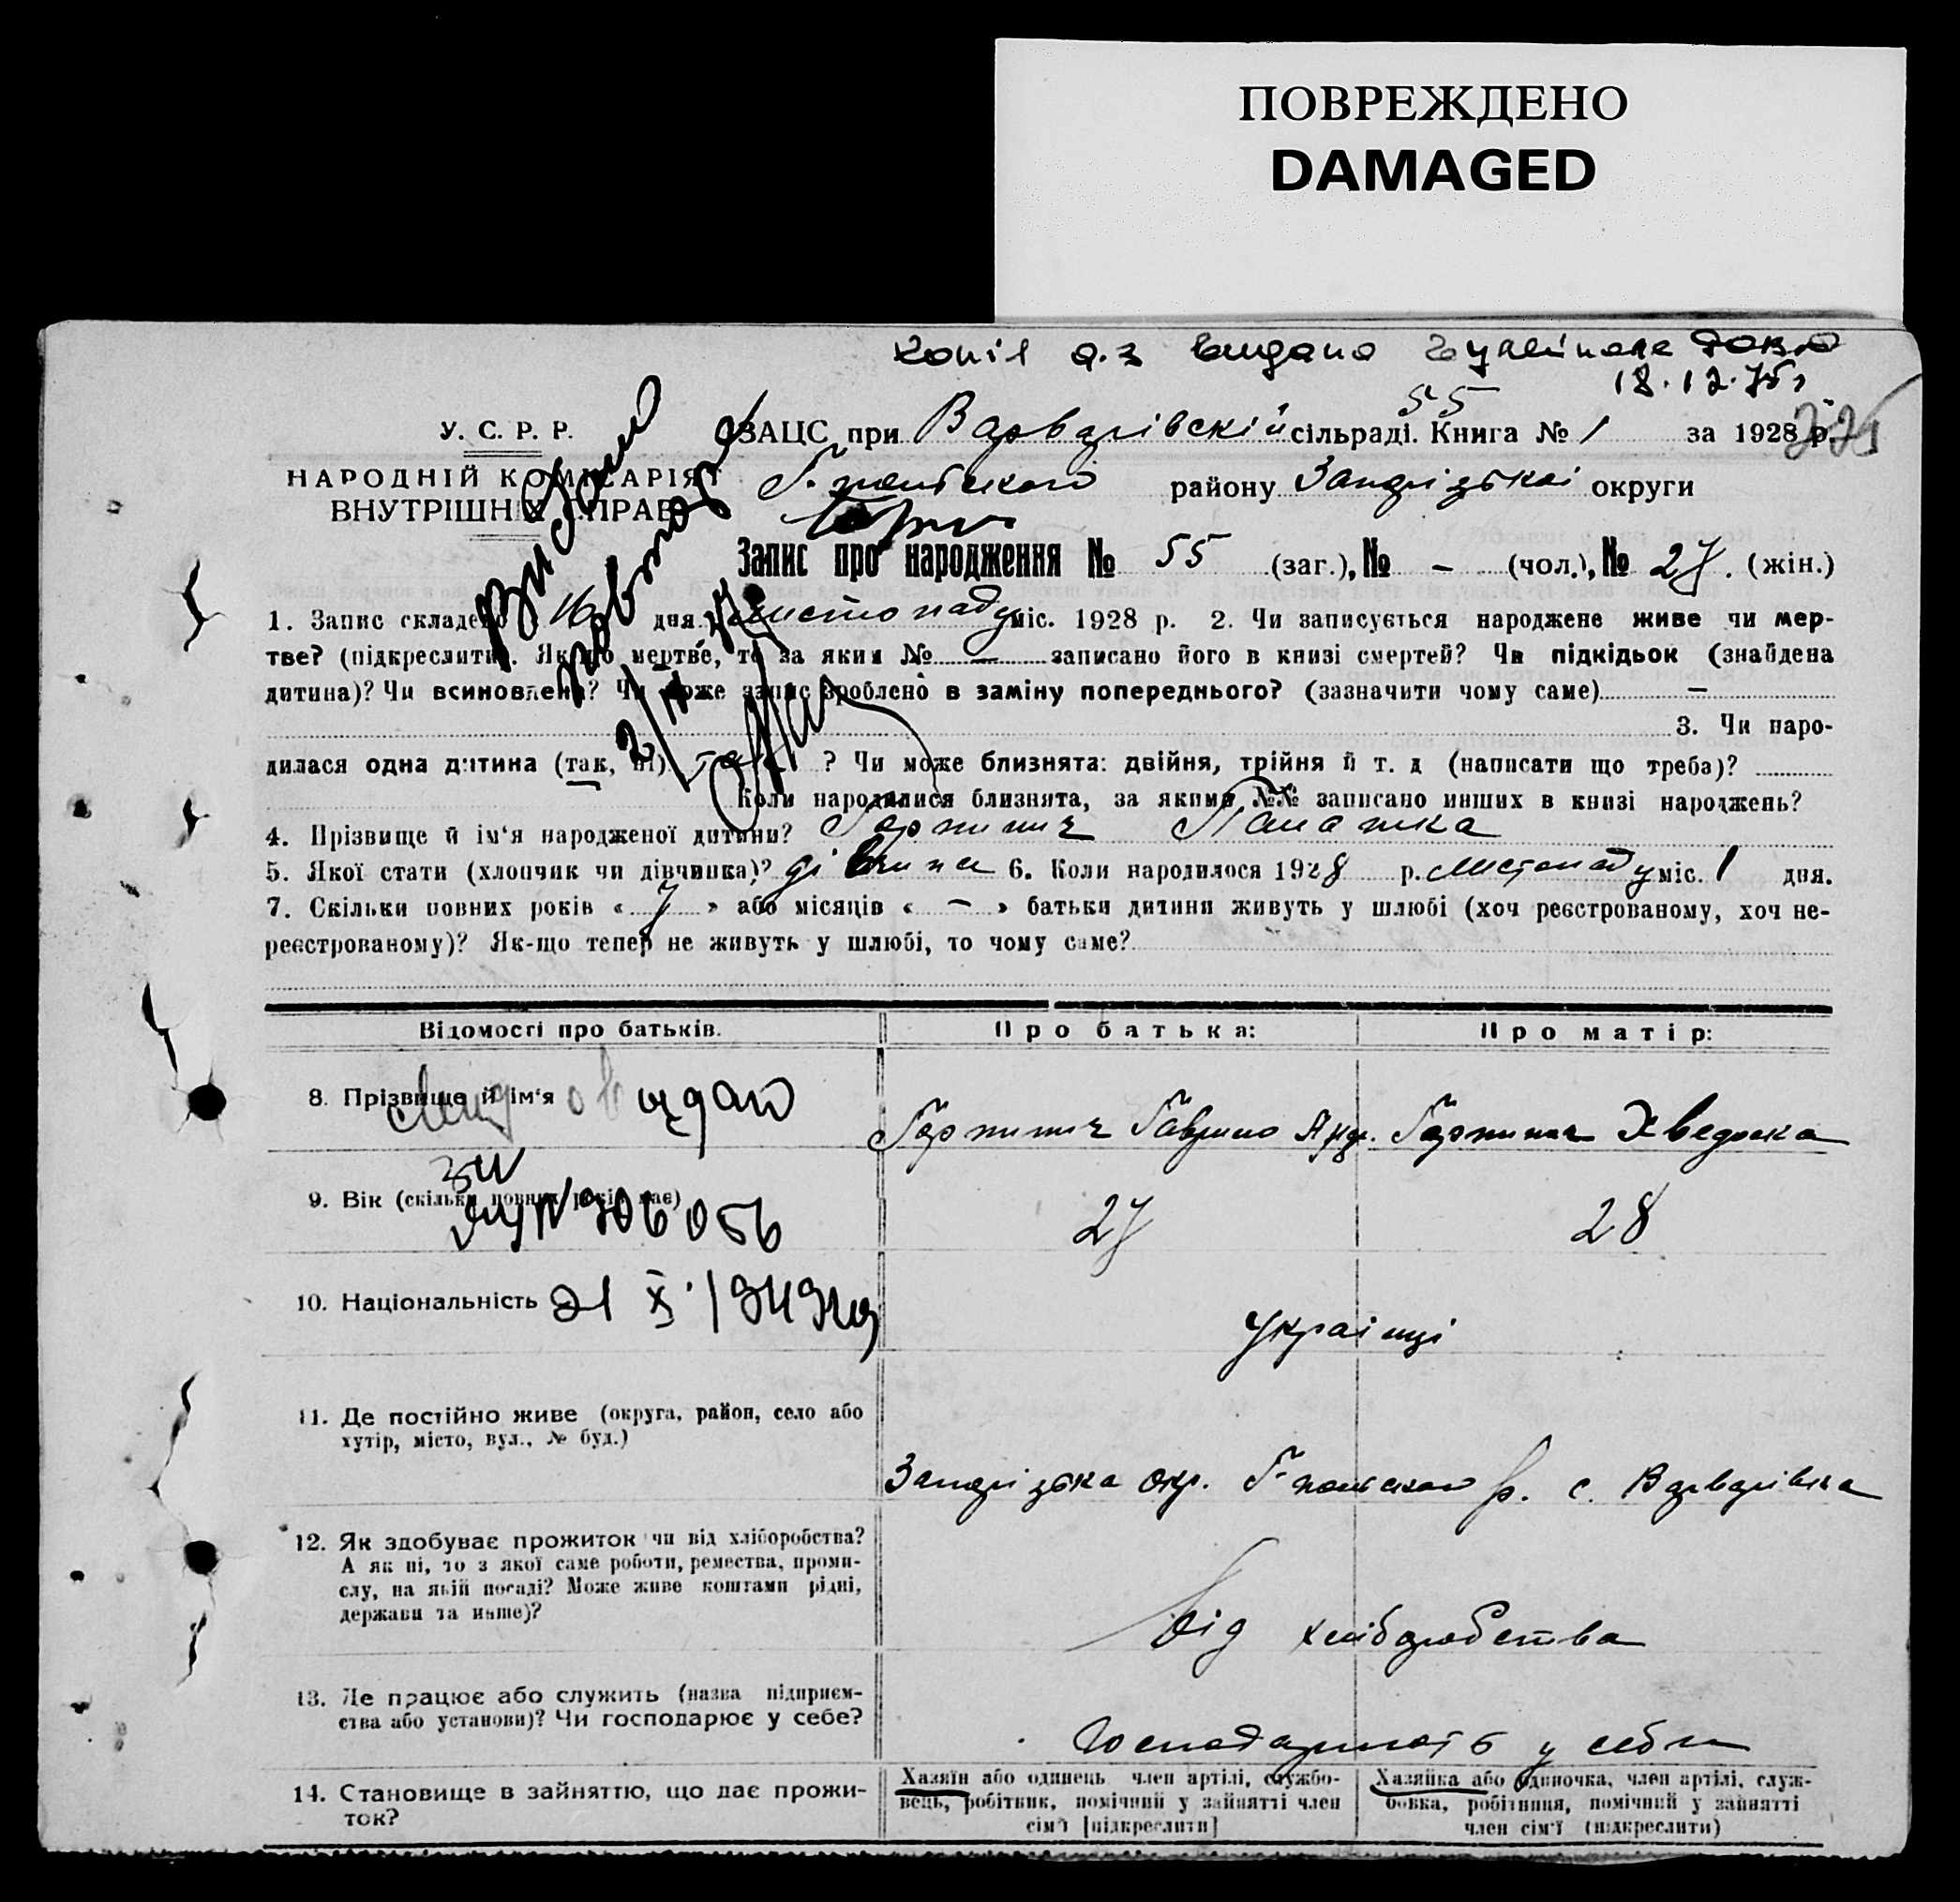 ПОВРЕЖДЕНО
DAMAGED
18.12.75г
55
У. С. Р. Р.
ЗАЦС при Варварівскій сільраді. Книга № 1 за 1928 р.
НАРОДНІЙ КОМІСАРІЯТ
Г-польского району Запорізької округи
ВНУТРІШНІХ СПРАВ
Запис про народження № 55 (заг.), № - (чол.), № 27. (жін.)
1. Запис складено 16 дня листопаду міс. 1928 р. 2. Чи записується народжене живе чи мер-
тве? (підкреслити). Як-що мертве, то за яким № — записано його в книзі смертей? Чи підкідьок (знайдена
дитина)? Чи всиновлена? Чи може запис зроблено в заміну попереднього? (зазначити чому саме) —
3. Чи наро-
дилася одна дитина (так, ні) так ? Чи може близнята: двійня, трійня й т. д (написати що треба)?
Коли народилися близнята, за якими №№ записано инших в книзі народжень?
4. Прізвище й ім'я народженої дитини? Гармаш
5. Якої стати (хлопчик чи дівчинка)? дівчина 6. Коли народилося 1928 р. листопаду міс. 1 дня.
7. Скільки повних років « 7 » або місяців « — » батьки дитини живуть у шлюбі (хоч реєстрованому, хоч не-
реєстрованому)? Як-що тепер не живуть у шлюбі, то чому саме?
Видано
повторно
Відомості про батьків.
Про батька:
Про матір:
8. Прізвище й ім'я
Гаврило Анд.
Хведоска
9. Вік (скільки повних років має)
27
28
№ 906056
10. Національність
21 X 1949
Українці
11. Де постійно живе (округа, район, село або
хутір, місто, вул., № буд.)
Запорізька окр. Г-польского р. с. Варварівка
12. Як здобуває прожиток чи від хліборобства?
А як ні, то з якої саме роботи, ремества, проми-
слу, на якій посаді? Може живе коштами рідні,
держави та инше)?
Від хліборобства
13. Де працює або служить (назва підприєм-
ства або установи)? Чи господарює у себе?
Господарюють у себе
14. Становище в зайняттю, що дає прожи-
ток?
Хазяїн або одинець член артілі, службо-
вець, робітник, помічний у зайнятті член
сім'ї [підкреслити]
Хазяйка або одиночка, член артілі, служ-
бовка, робітниця, помічний у зайнятті
член сім'ї (підкреслити)